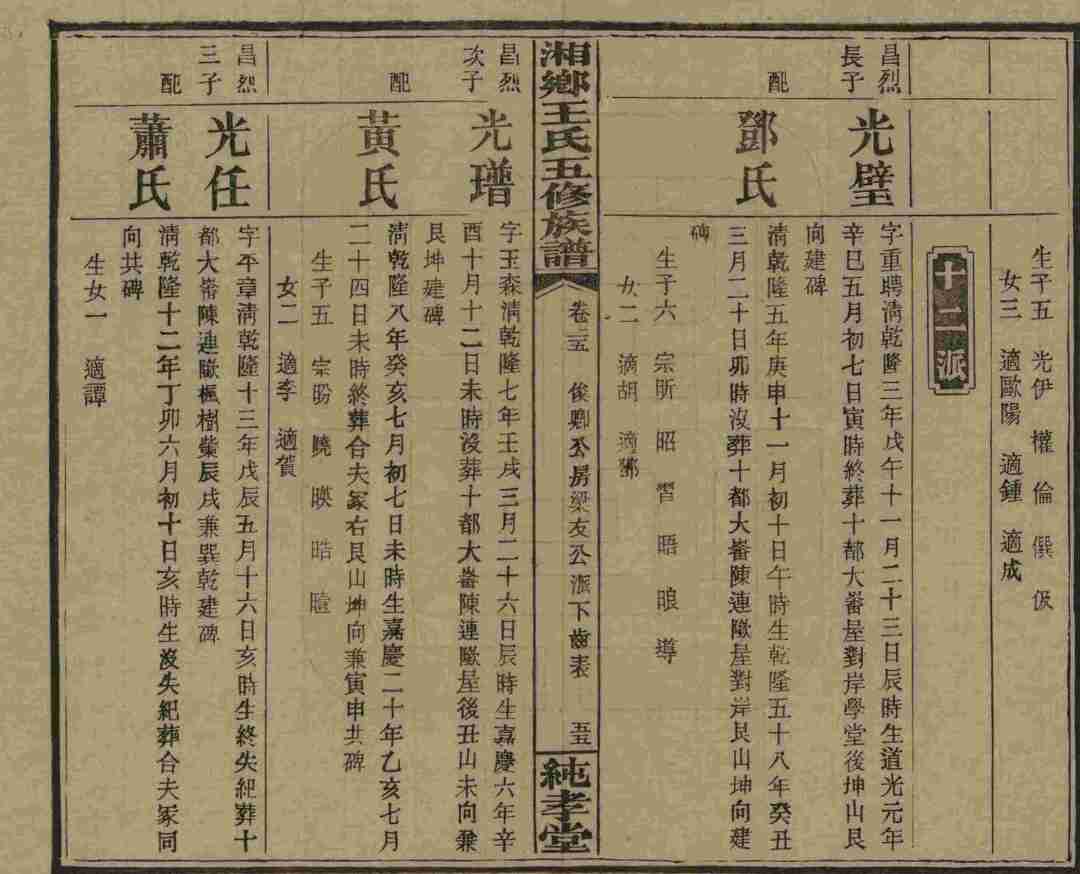 生子五 光伊 權 倫 僎 伋
女三 適歐陽 適鍾 適成
十二派
昌烈
長子
光璧
字重聘清乾隆三年戊午十一月二十三日辰時生道光元年
辛巳五月初七日寅時終葬十都大崙屋對岸學堂後坤山艮
向建碑
配
鄧氏
清乾隆五年庚申十一月初十日午時生乾隆五十八年癸丑
三月二十日卯時沒葬十都大崙陳連歐屋對岸艮山坤向建
碑
生子六 宗昕 昭 習 晤 㫰 導
女二 適胡 適鄧
湘鄉王氏五修族譜
卷
俊卿公房梁友公派下齒表
純孝堂
昌烈
次子
光璔
字玉森清乾隆七年壬戌三月二十六日辰時生嘉慶六年辛
酉十月十二日未時沒葬十都大崙陳連歐屋後丑山未向兼
艮坤建碑
配
黃氏
清乾隆八年癸亥七月初七日未時生嘉慶二十年乙亥七月
二十四日未時終葬合夫冢右艮山坤向兼寅申共碑
生子五 宗昐 曉 暎 晧 瞳
女二 適李 適賀
昌烈
三子
光任
字平章清乾隆十三年戊辰五月十六日亥時生終失紀葬十
都大崙陳連歐楓樹辰戌兼巽乾建碑
配
蕭氏
清乾隆十二年丁卯六月初十日亥時生沒失紀葬合夫冢同
向共碑
生女一 適譚